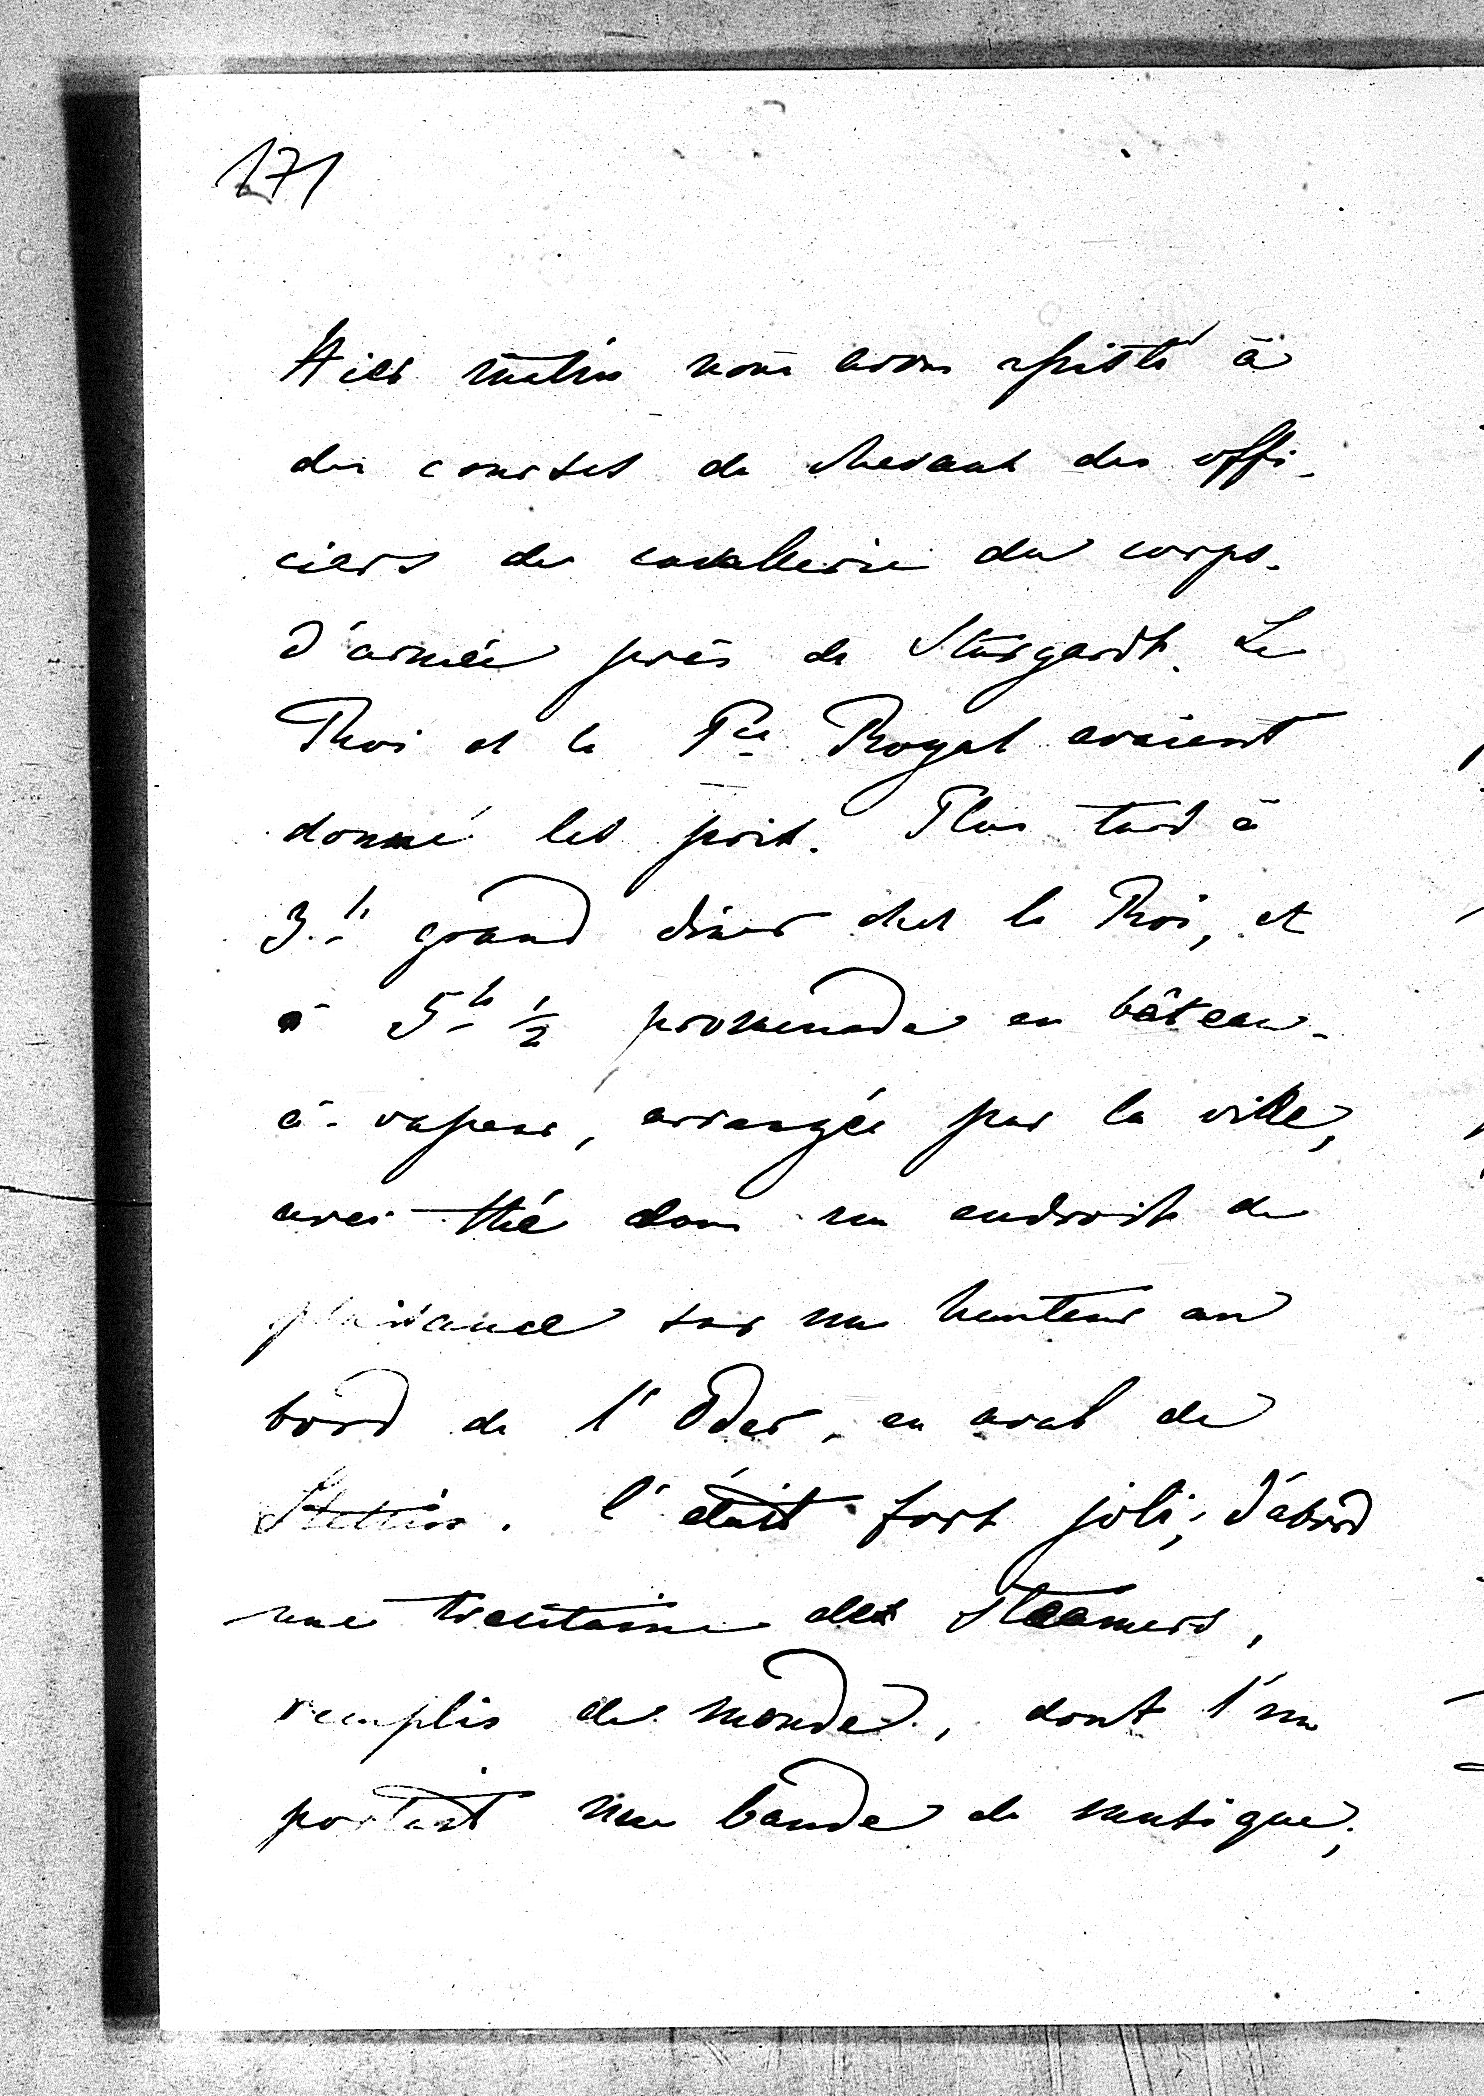 171
Hier matin nous avons assisté à
des courses de chevaux des offi-
ciers de cavallerie du corps-
d'armée près de Stargardt. Le
Roi et le Pce Royal avaient
donné les prix. Plus tard à
3 h grand diner chez le Roi, et
à 5 h ½ promenade en bâteau-
à-vapeur, arrangée par la ville,
avec thé dans un endroit de
plaisance sur une hauteur au
bord de l'Oder, en aval de
Stettin. C'était fort joli; d'abord
une trentaine des steamers,
remplis de monde, dont l'un
portait une bande de musique;